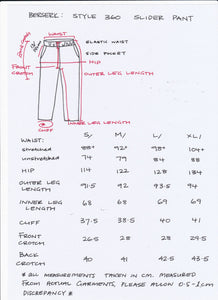 BERSERK: STYLE 360 SLIDER PANT
WAIST
ELASTIC WAIST
SIDE POCKET
HIP
FRONT CROTCH
OUTER LEG LENGTH
INNER LEG LENGTH
CUFF
S/ M/ L/ XL/
WAIST
stretched 88+ 92+ 98+ 104+
unstretched 74 79 84 88
HIP 114 122 128 134
OUTER LEG LENGTH 91.5 92 93.5 94
INNER LEG LENGTH 68 68 69 69
CUFF 37.5 38.5 40 41
FRONT CROTCH 26.5 28 28 29.5
BACK CROTCH 40 41 42.5 43.5
* ALL MEASUREMENTS TAKEN IN CM. MEASURED
FROM ACTUAL GARMENTS, PLEASE ALLOW 0.5-1cm
DISCREPANCY *